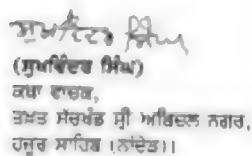 (ਸੁਖਵਿੰਦਰ ਸਿੰਘ)
ਕਥਾ ਵਾਚਕ,
ਤਖ਼ਤ ਸੱਚਖੰਡ ਸ੍ਰੀ ਅਬਿਚਲ ਨਗਰ,
ਹਜ਼ੂਰ ਸਾਹਿਬ (ਨਾਂਦੇੜ)।